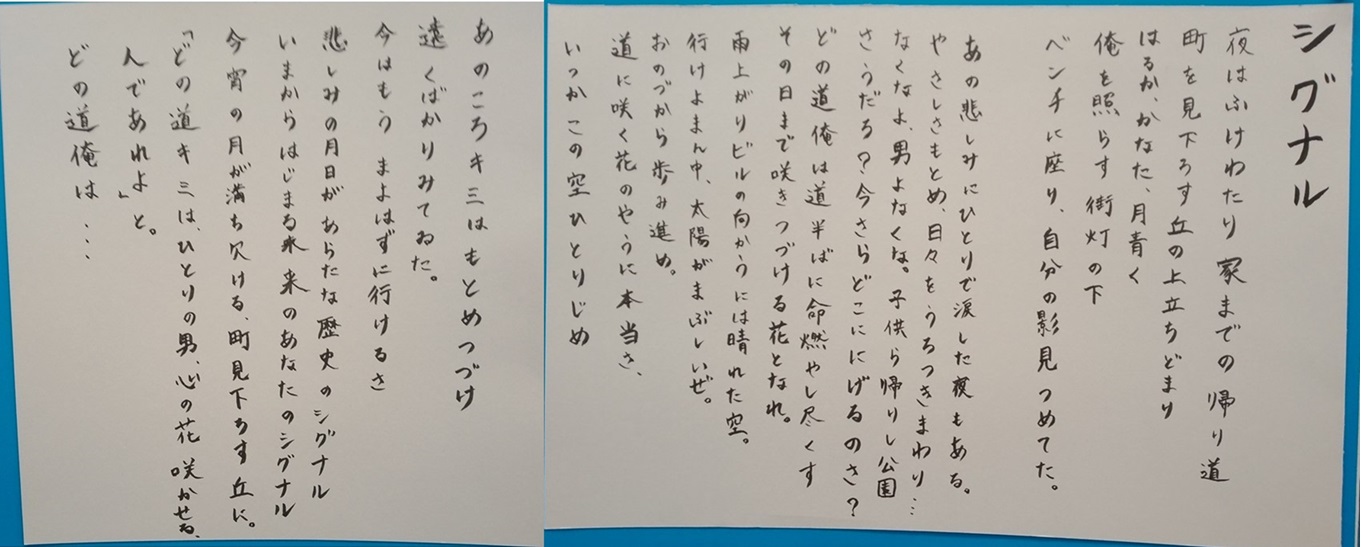 シグナル
夜はふけわたり 家までの帰り道
町を見下ろす丘の上立ちどまり
はるか、かなた、月青く
俺を照らす街灯の下
ベンチに座り、自分の影見つめてた。
あの悲しみにひとりで涙した夜もある。
やさしさもとめ、日々をうろつきまわり…
なくなよ、男よなくな。子供ら帰りし公園
さうだろ?今さらどこににげるのさ?
どの道俺は道半ばに命燃やし尽くす
その日まで咲きつづける花となれ。
雨上がりビルの向かうには晴れた空。
行けよまん中、太陽がまぶしいぜ。
おのづから歩み進め。
道に咲く花のやうに本当さ、
いつかこの空ひとりじめ
あのころキミはもとめつづけ
遠くばかりみてゐた。
今はもう まよはずに行けるさ
悲しみの月日があらたな歴史のシグナル
いまからはじまる未来のあなたのシグナル
今宵の月が満ち欠ける、町見下ろす丘に。
「どの道キミは、ひとりの男、心の花 咲かせる、
人であれよ」と。
どの道俺は...